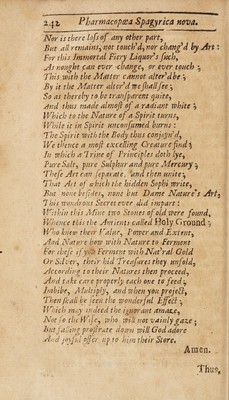 242 Pharmacopœa Spagyrica nova.
Nor is there loss of any other part,
But all remains, not touch'd, nor chang'd by Art:
For this Immortal Fiery Liquor's such,
As nought can ever change, or ever touch;
This with the Matter cannot alter'd be;
By it the Matter alter'd we shall see;
So as thereby to be transparent quite,
And thus made almost of a radiant white;
Which to the Nature of a Spirit turns,
While it in Spirit unconsumed burns:
The Spirit with the Body thus conjoyn'd,
We thence a most excelling Creature find;
In which a Trine of Principles doth lye,
Pure Salt, pure Sulphur and pure Mercury;
These Art can separate, and then unite;
That Art of which the hidden Sophi write,
But none besides, none but Dame Nature's Art,
This wondrous Secret ever did impart:
Within this Mine two Stones of old were found,
Whence this the Antients called Holy Ground;
Who knew their Value, Power and Extent,
And Nature how with Nature to Ferment
For these if you Ferment with Nat'ral Gold
Or Silver, their hid Treasures they unfold,
According to their Natures then proceed,
And take care properly each one to feed;
Imbibe, Multiply, and when you project,
Then shall be seen the wonderful Effect;
Which may indeed the ignorant amaze,
Not so the Wise, who will not vainly gaze;
But falling prostrate down will God adore
And joyful offer up to him their Store.
Amen.
Thus,